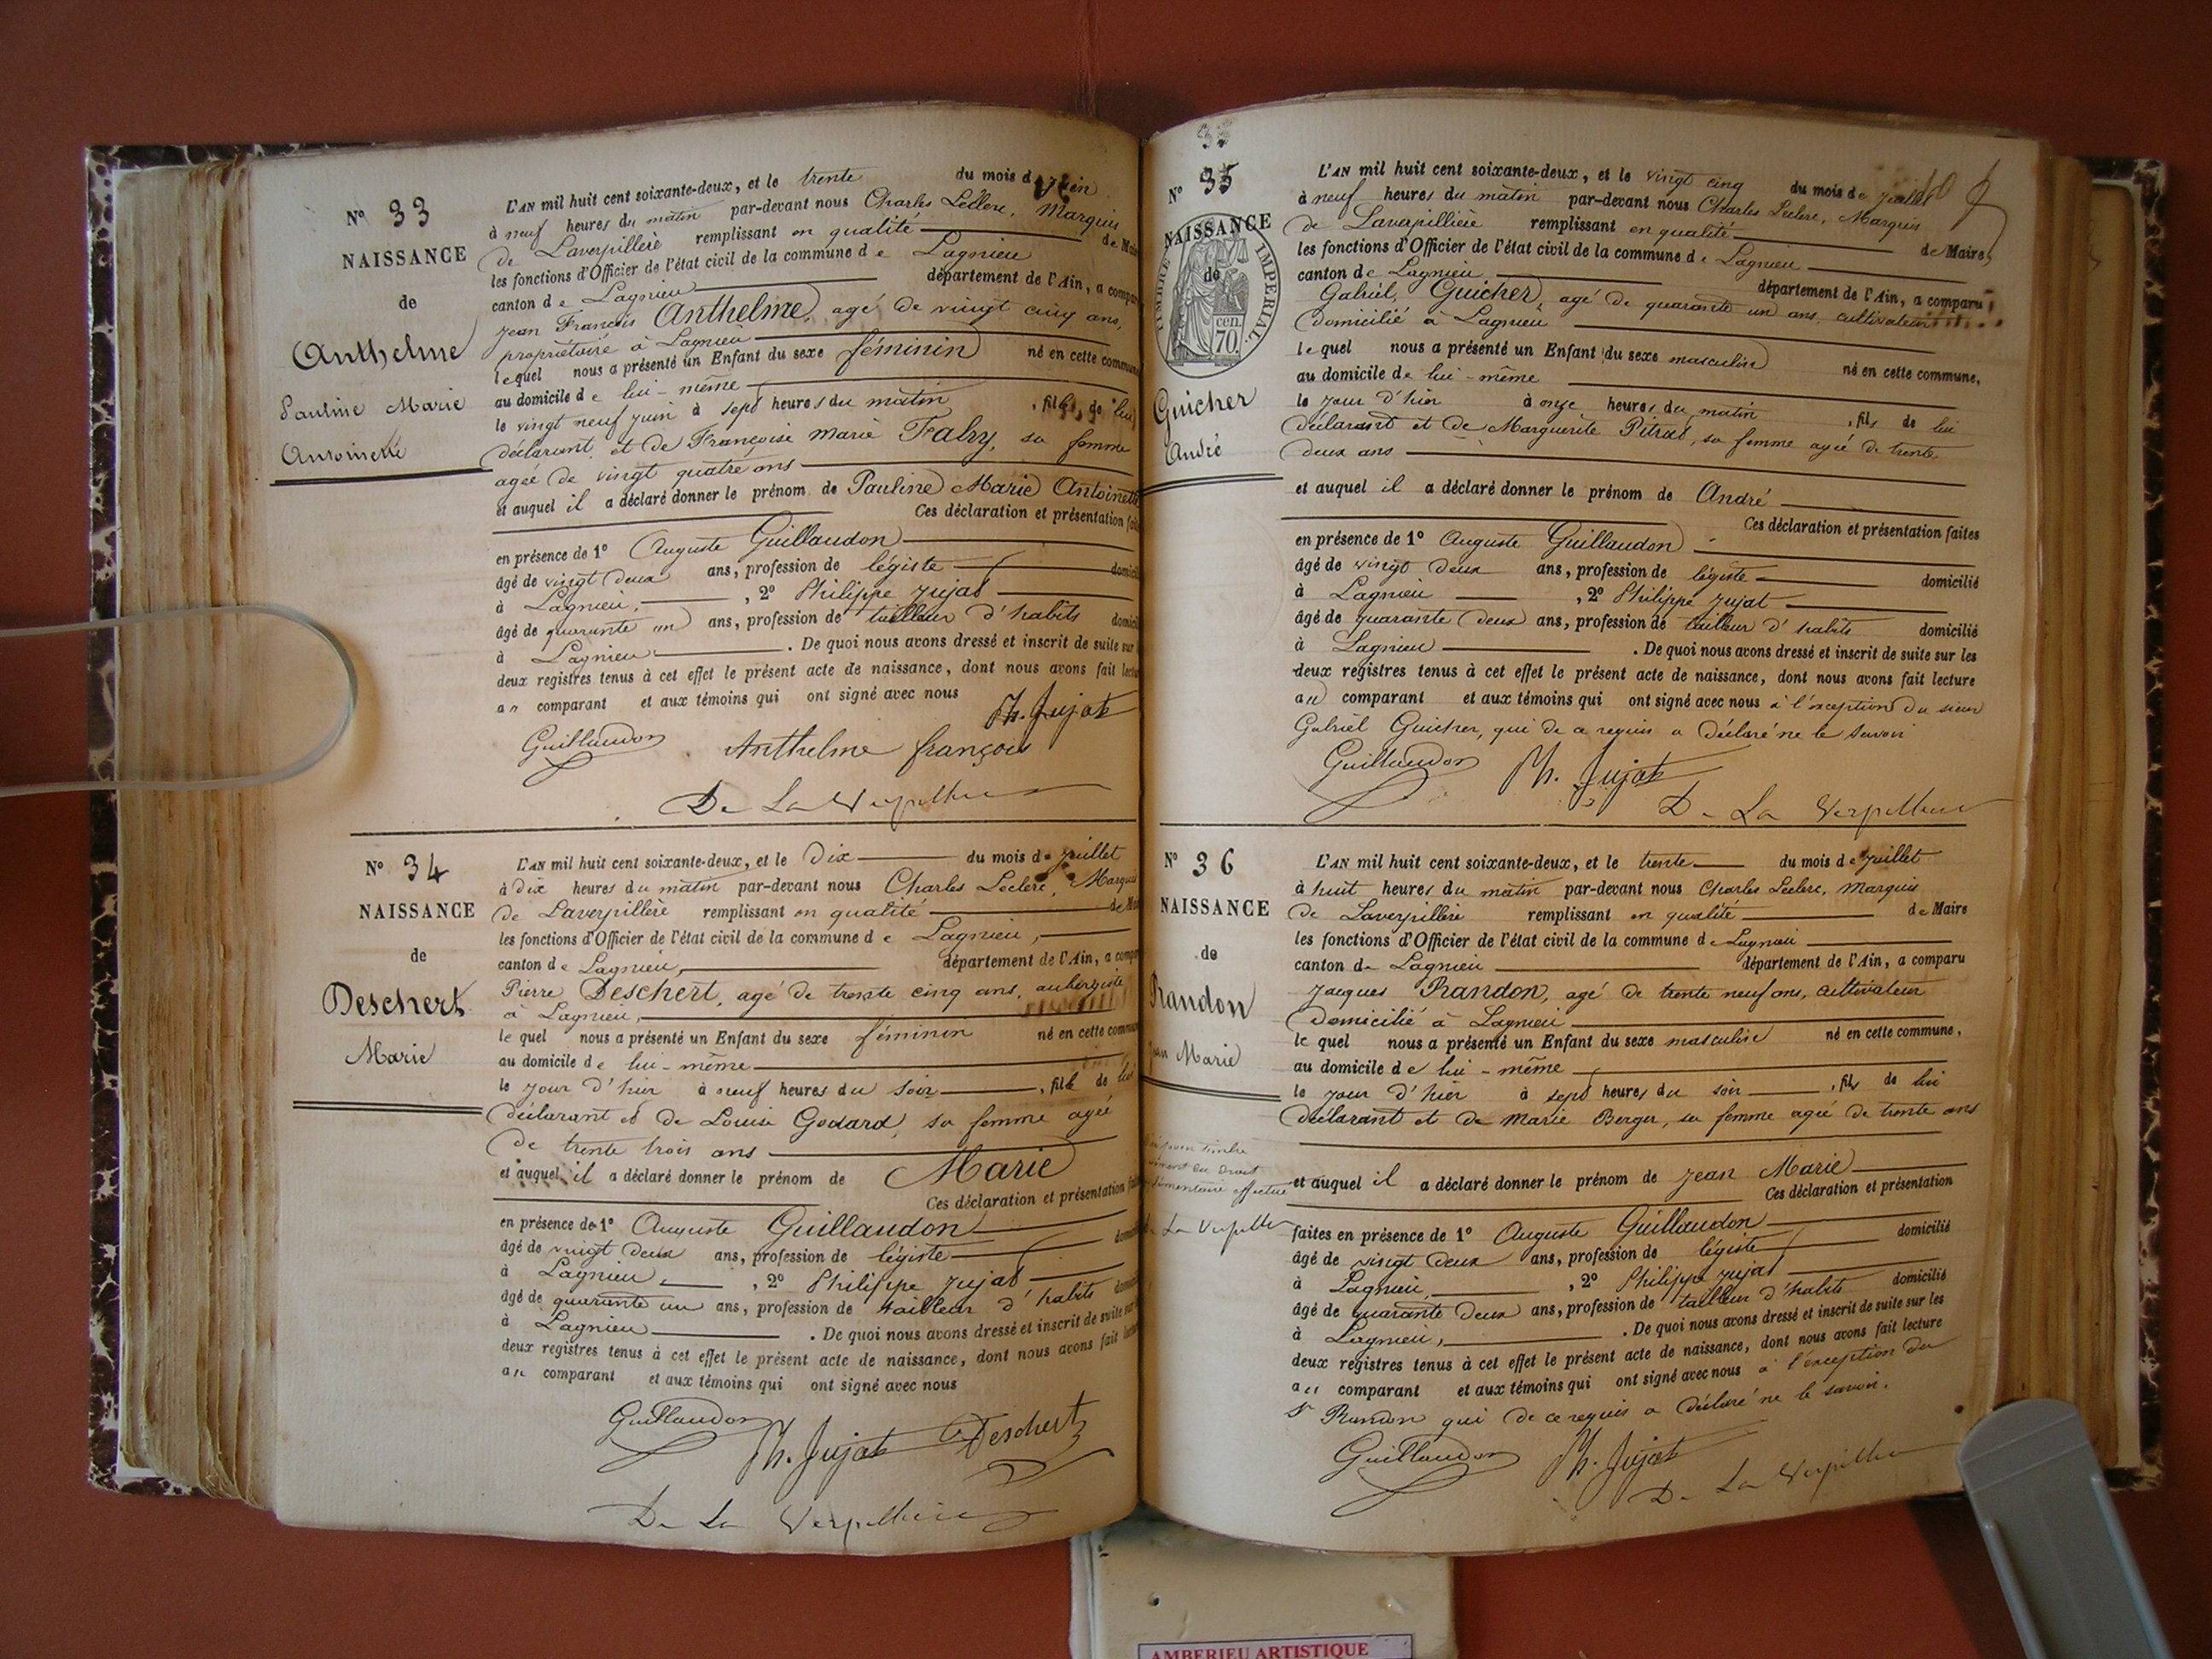 N° 33
NAISSANCE
de
Anthelme
Pauline Marie
Antoinette
L'AN mil huit cent soixante-deux, et le trente du mois de Juin
à neuf heures du matin par-devant nous Charles Leclerc, Marquis
de Laverpillière remplissant en qualité de Maire
les fonctions d'Officier de l'état civil de la commune de Lagnieu
canton de Lagnieu département de l'Ain, a compar
Jean François Anthelme, agé de vingt cinq ans,
propriétaire à Lagnieu
lequel nous a présenté un Enfant du sexe féminin né en cette commune
au domicile de lui-même
le vingt neuf juin à sept heures du matin, fille de lui
déclarant et de Françoise Marie Falry, sa femme
agée de vingt quatre ans
et auquel il a déclaré donner le prénom de Pauline Marie Antoinette
Ces déclaration et présentation fai
en présence de 1° Auguste Guillaudon
âgé de vingt deux ans, profession de légiste domicil
à Lagnieu, 2° Philippe Jujat
âgé de quarante un ans, profession de tailleur d'habits domici
à Lagnieu. De quoi nous avons dressé et inscrit de suite sur
deux registres tenus à cet effet le présent acte de naissance, dont nous avons fait lectu
au comparant et aux témoins qui ont signé avec nous
Ph. Jujat
Guillaudon Anthelme françois
De La Verpillière
N° 34
NAISSANCE
de
Deschert
Marie
L'AN mil huit cent soixante-deux, et le Dix du mois de Juillet
à dix heures du matin par-devant nous Charles Leclerc, Marquis
de Laverpillière remplissant en qualité de Mai
les fonctions d'Officier de l'état civil de la commune de Lagnieu,
canton de Lagnieu, département de l'Ain, a compa
Pierre Deschert, agé de trente cinq ans, aubergiste
à Lagnieu,
lequel nous a présenté un Enfant du sexe féminin né en cette commun
au domicile de lui-même
le jour d'hier à neuf heures du soir, fille de lui
déclarant et de Louise Godard, sa femme agée
de trente trois ans
et auquel il a déclaré donner le prénom de Marie
Ces déclaration et présentation fai
en présence de 1° Auguste Guillaudon
âgé de vingt deux ans, profession de légiste domi
à Lagnieu, 2° Philippe Jujat
âgé de quarante un ans, profession de tailleur d'habits domici
à Lagnieu. De quoi nous avons dressé et inscrit de suite sur
deux registres tenus à cet effet le présent acte de naissance, dont nous avons fait lectu
au comparant et aux témoins qui ont signé avec nous
Guillaudon Ph. Jujat Deschert
De La Verpillière
N° 35
NAISSANCE
de
TIMBRE IMPERIAL
70 cen.
Guicher
André
L'AN mil huit cent soixante-deux, et le vingt cinq du mois de Juillet
à neuf heures du matin par-devant nous Charles Leclerc, Marquis
de Laverpillière remplissant en qualité de Maire,
les fonctions d'Officier de l'état civil de la commune de Lagnieu
canton de Lagnieu département de l'Ain, a comparu
Gabriel, Guicher, agé de quarante un ans, cultivateur
domicilié à Lagnieu
lequel nous a présenté un Enfant du sexe masculin né en cette commune,
au domicile de lui-même
le jour d'hier à onze heures du matin, fils de lui
déclarant et de Marguerite Pitrat, sa femme agée de trente
deux ans
et auquel il a déclaré donner le prénom de André
Ces déclaration et présentation faites
en présence de 1° Auguste Guillaudon
âgé de vingt deux ans, profession de légiste domicilié
à Lagnieu, 2° Philippe Jujat
âgé de quarante deux ans, profession de tailleur d'habits domicilié
à Lagnieu. De quoi nous avons dressé et inscrit de suite sur les
deux registres tenus à cet effet le présent acte de naissance, dont nous avons fait lecture
au comparant et aux témoins qui ont signé avec nous à l'exception du sieur
Gabriel Guicher, qui de ce requis a déclaré ne le savoir
Guillaudon Ph. Jujat
De La Verpillière
N° 36
NAISSANCE
de
Randon
Jean Marie
L'AN mil huit cent soixante-deux, et le trente du mois de Juillet
à huit heures du matin par-devant nous Charles Leclerc, Marquis
de Laverpillière remplissant en qualité de Maire
les fonctions d'Officier de l'état civil de la commune de Lagnieu
canton de Lagnieu département de l'Ain, a comparu
Jacques Randon, agé de trente neuf ans, cultivateur
domicilié à Lagnieu
lequel nous a présenté un Enfant du sexe masculin né en cette commune,
au domicile de lui-même
le jour d'hier à sept heures du soir, fils de lui
déclarant et de Marie Berger, sa femme agée de trente ans
et auquel il a déclaré donner le prénom de Jean Marie
Ces déclaration et présentation
faites en présence de 1° Auguste Guillaudon domicilié
âgé de vingt deux ans, profession de légiste
à Lagnieu, 2° Philippe Jujat domicilié
âgé de quarante deux ans, profession de tailleur d'habits
à Lagnieu,. De quoi nous avons dressé et inscrit de suite sur les
deux registres tenus à cet effet le présent acte de naissance, dont nous avons fait lecture
au comparant et aux témoins qui ont signé avec nous à l'exception du
Sr Randon qui de ce requis a déclaré ne le savoir.
Guillaudon Ph. Jujat
De La Verpillière
timbre
du Droit
La Verpillière
AMBERIEU ARTISTIQUE